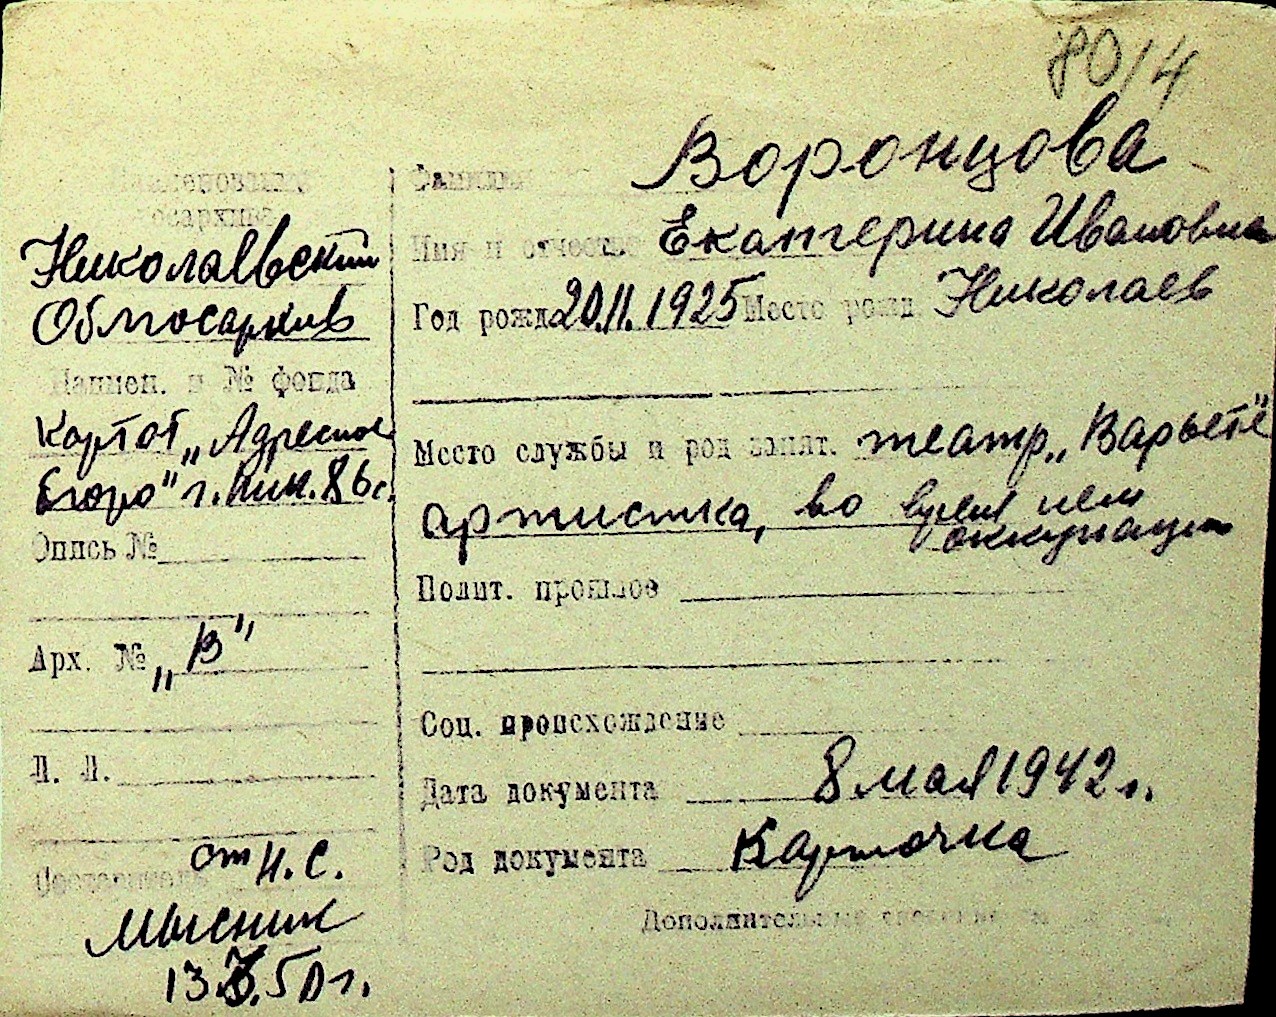 80/4
Наименование
госархива
Николаевский
Облгосархив
Наимен. и № фонда
Картот. „Адресное
бюро" г. Ник.
Опись №
Арх. № „В"
Л. Л.
Составитель от Н. С.
13. 50 г.
Фамилия Воронцова
Имя и отчество Екатерина Ивановна
Год рожд. 20.11.1925 Место рожд Николаев
Место службы и род занят. театр „Варьете"
артистка, во время нем
оккупации
Полит. прошлое
Соц. происхождение
Дата документа 8 мая 1942 г.
Род документа Карточка
Дополнительные сведения на